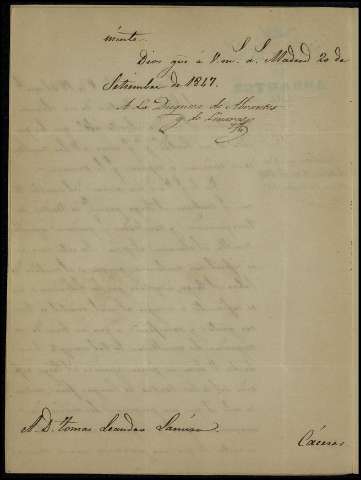 mente.
Dios gue á Vm. a. s. Madrid 20 de
Setiembre de 1847.
A La Duquesa de Abrantes
y de Linares
Sr. D. Tomas Leandro
Cáceres